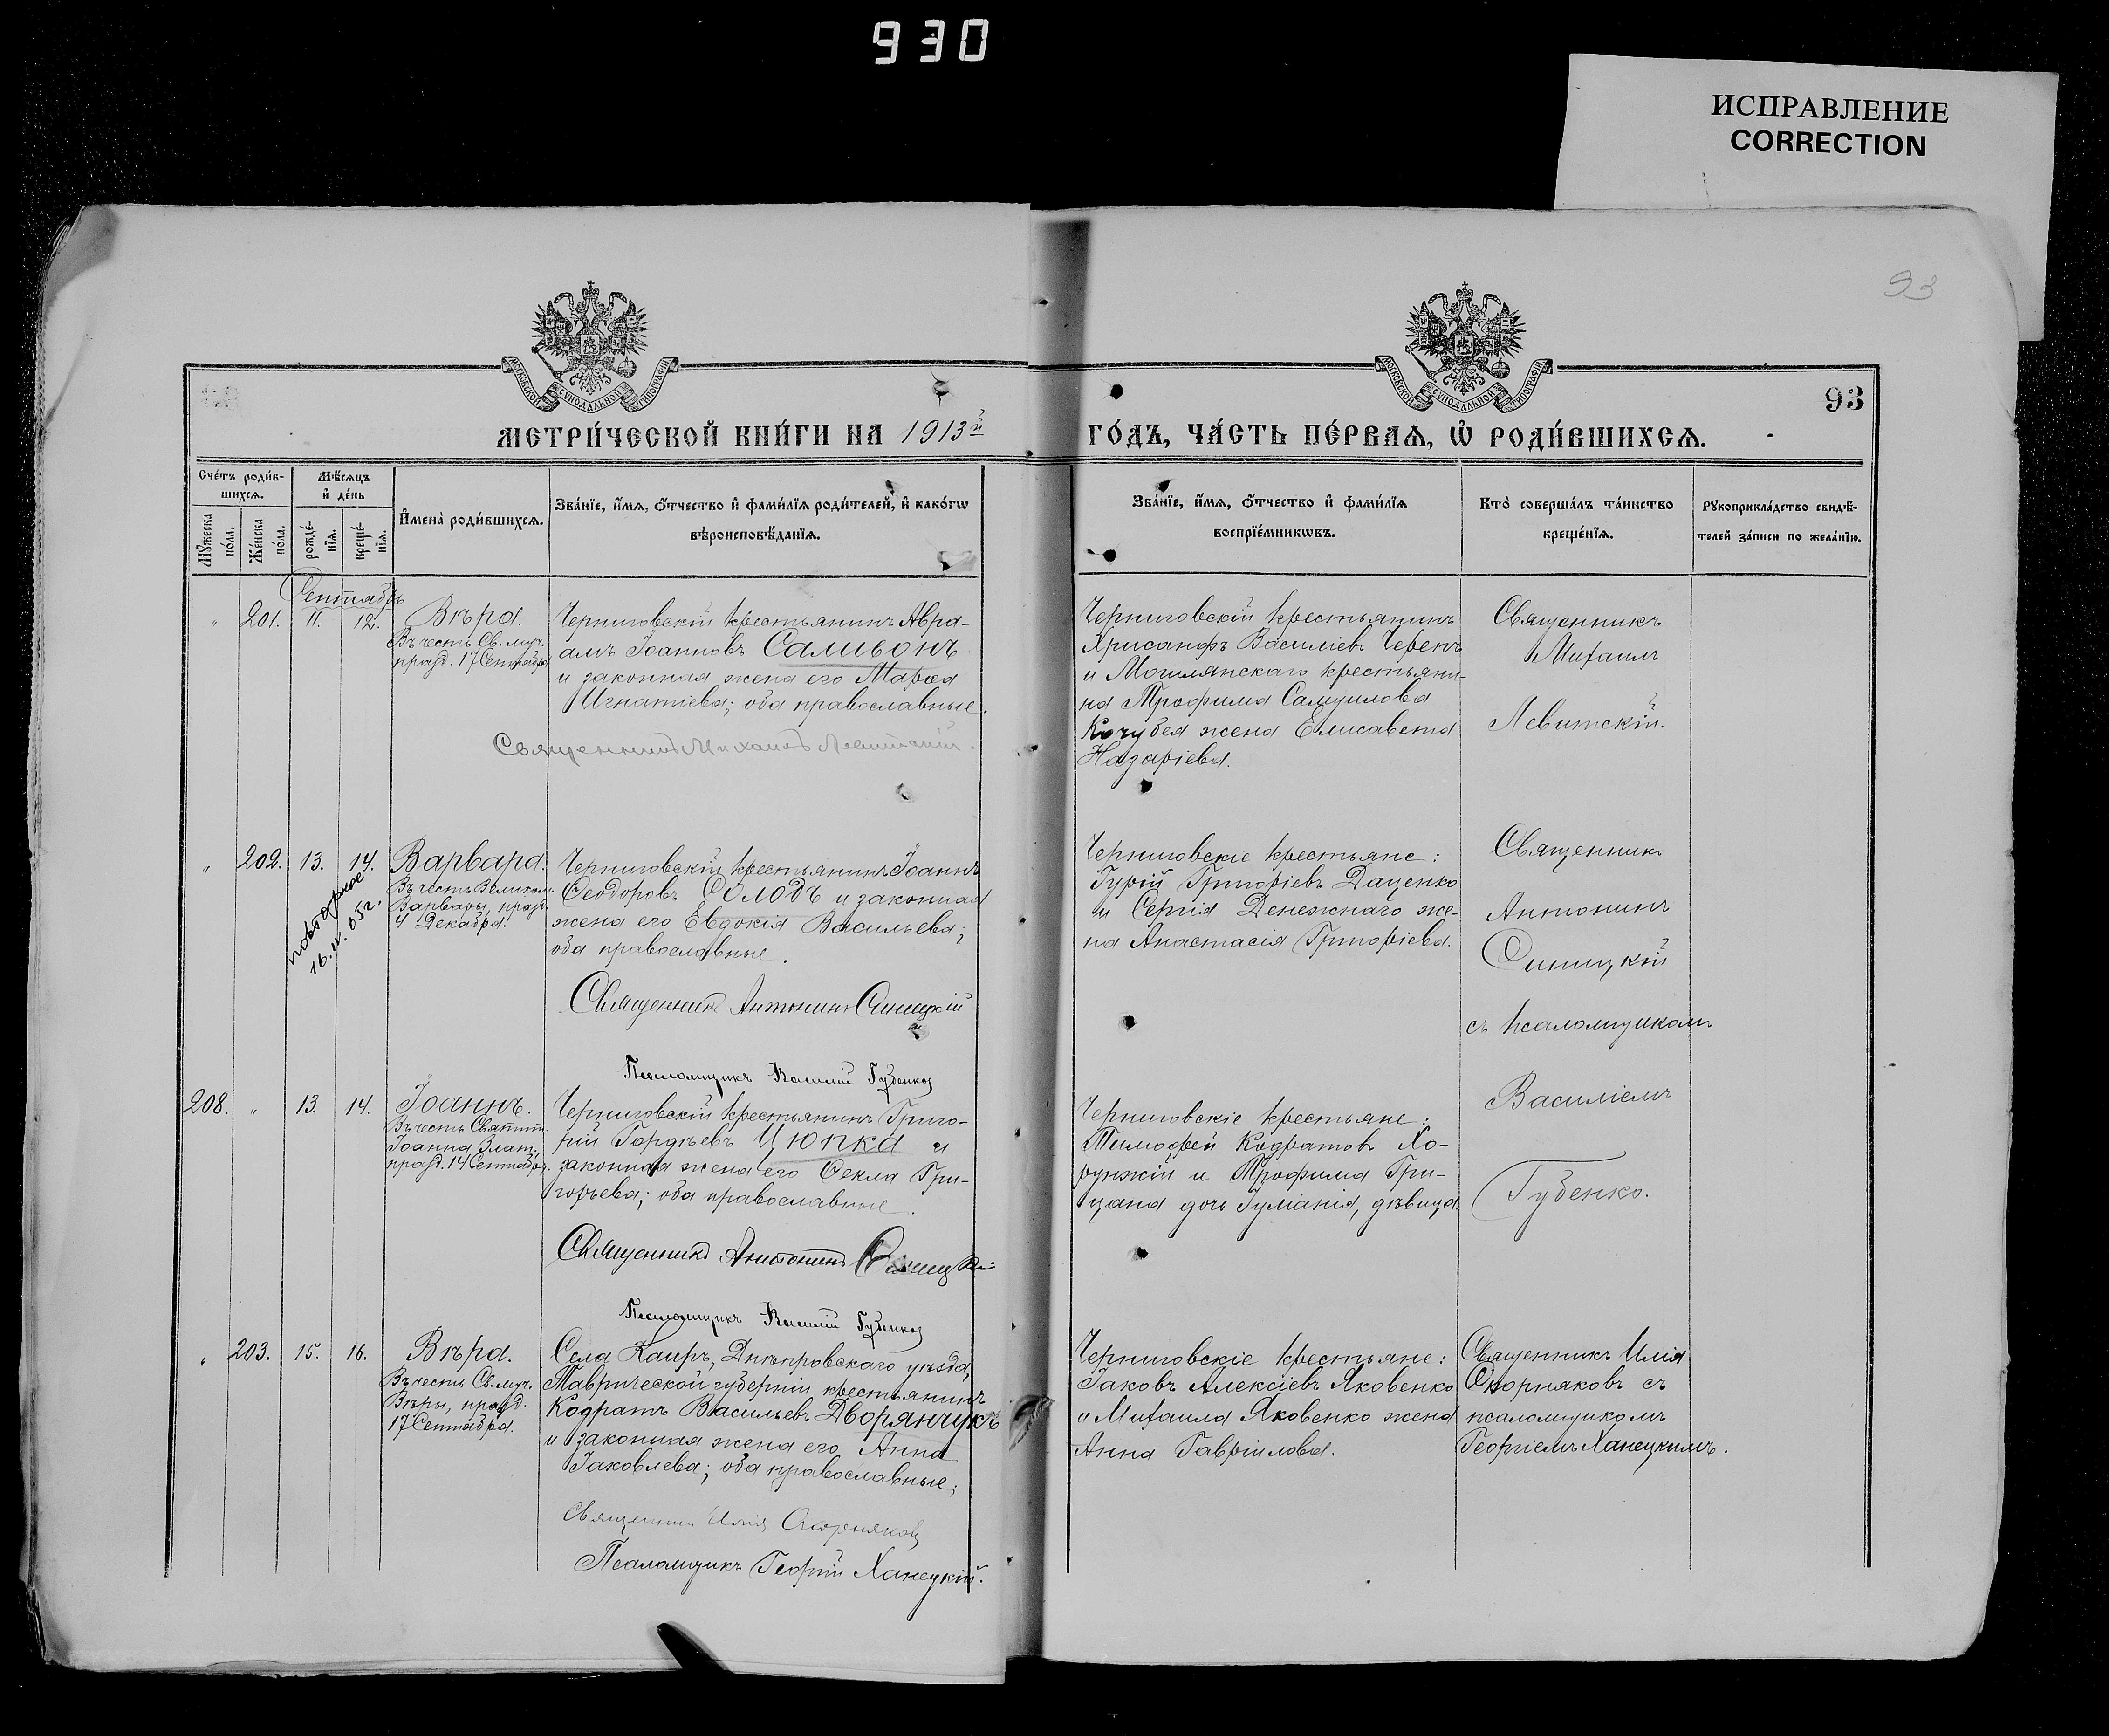 930
ИСПРАВЛЕНИЕ
CORRECTION
93
93
МОСКОВСКОЙ СѴНОДАЛЬНОЙ ТИПОГРАФІИ
МОСКОВСКОЙ СѴНОДАЛЬНОЙ ТИПОГРАФІИ
МЕТРИ́ЧЕСКОЙ КНИ́ГИ НА 1913й
ГО́ДЪ, ЧА́СТЬ ПЕ́РВАѦ, Ѡ҆ РОДИ́ВШИХСѦ.
Сче́тъ роди́в-
шихсѧ.
Мѣ́сѧцъ
и҆ де́нь
Мꙋ́жеска
по́ла.
Же́нска
по́ла.
рожде́-
нїѧ.
креще́-
нїѧ.
И҆мена̀ роди́вшихсѧ.
Зва́нїе, и҆́мѧ, ѻ҆́тчество и҆ фами́лїѧ роди́телей, и҆ како́гѡ
вѣроисповѣ́данїѧ.
Зва́нїе, и҆́мѧ, ѻ҆́тчество и҆ фами́лїѧ
воспрїе́мникѡвъ.
Кто̀ соверша́лъ та́инство
креще́нїѧ.
Рꙋкоприкла́дство свидѣ́-
телей за́писи по жела́нїю.
Сентябрь
" 201. 11. 12. Вѣра.
Въ честь Св. муч.
празд. 17 Сентября
Черниговскій крестьянинъ Авра-
амъ Іоанновъ Самсонъ
и законная жена его Марѳа
Игнатіева; оба православные.
Священникъ Михаилъ Левитскій.
Черниговскій крестьянинъ
Хрисанфъ Василіевъ Черепъ
и Могилянскаго крестьяни-
на Трофима Самуилова
Кочубея жена Елисавета
Назаріева.
Священникъ
Михаилъ
Левитскій.
" 202. 13. 14. Варвара.
Въ честь Великом.
Варвары, празд.
4 Декабря.
повторное
16.11.05г.
Черниговскій крестьянинъ Іоаннъ
Ѳеодоровъ Солодъ и законная
жена его Евдокія Васильева;
оба православные.
Священникъ Антонинъ Синицкій
Псаломщикъ Василій Губенко
Черниговскіе крестьяне:
Гурій Григоріевъ Даценко
и Сергія Денежнаго же-
на Анастасія Григоріева.
Священникъ
Антонинъ
Синицкій
съ псаломщикомъ
Василіемъ
Губенко.
208. " 13. 14. Іоаннъ.
Въ честь Святит.
Іоанна Злат.,
празд. 14 Сентября.
Черниговскій крестьянинъ Григо-
рій Гордѣевъ Цюпка и
законная жена его Ѳекла Гри-
горьева; оба православные.
Священникъ Антонинъ Синицкій
Псаломщикъ Василій Губенко
Черниговскіе крестьяне:
Тимоѳей Кодратовъ Хо-
ружій и Трофима Гри-
цана дочь Гуліанія, дѣвица.
" 203. 15. 16. Вѣра.
Въ честь Св. муч.
Вѣры, празд.
17 Сентября.
Села Каиръ, Днѣпровскаго уѣзда,
Таврической губерніи крестьянинъ
Кодратъ Васильевъ Дворянчукъ
и законная жена его Анна
Іаковлева; оба православные;
Священникъ Илія Скорняковъ
Псаломщикъ Георгій Ханецкій.
Черниговскіе крестьяне:
Іаковъ Алексіевъ Яковенко
и Михаила Яковенко жена
Анна Гавріилова.
Священникъ Илія
Скорняковъ съ
псаломщикомъ
Георгіемъ Ханецкимъ.